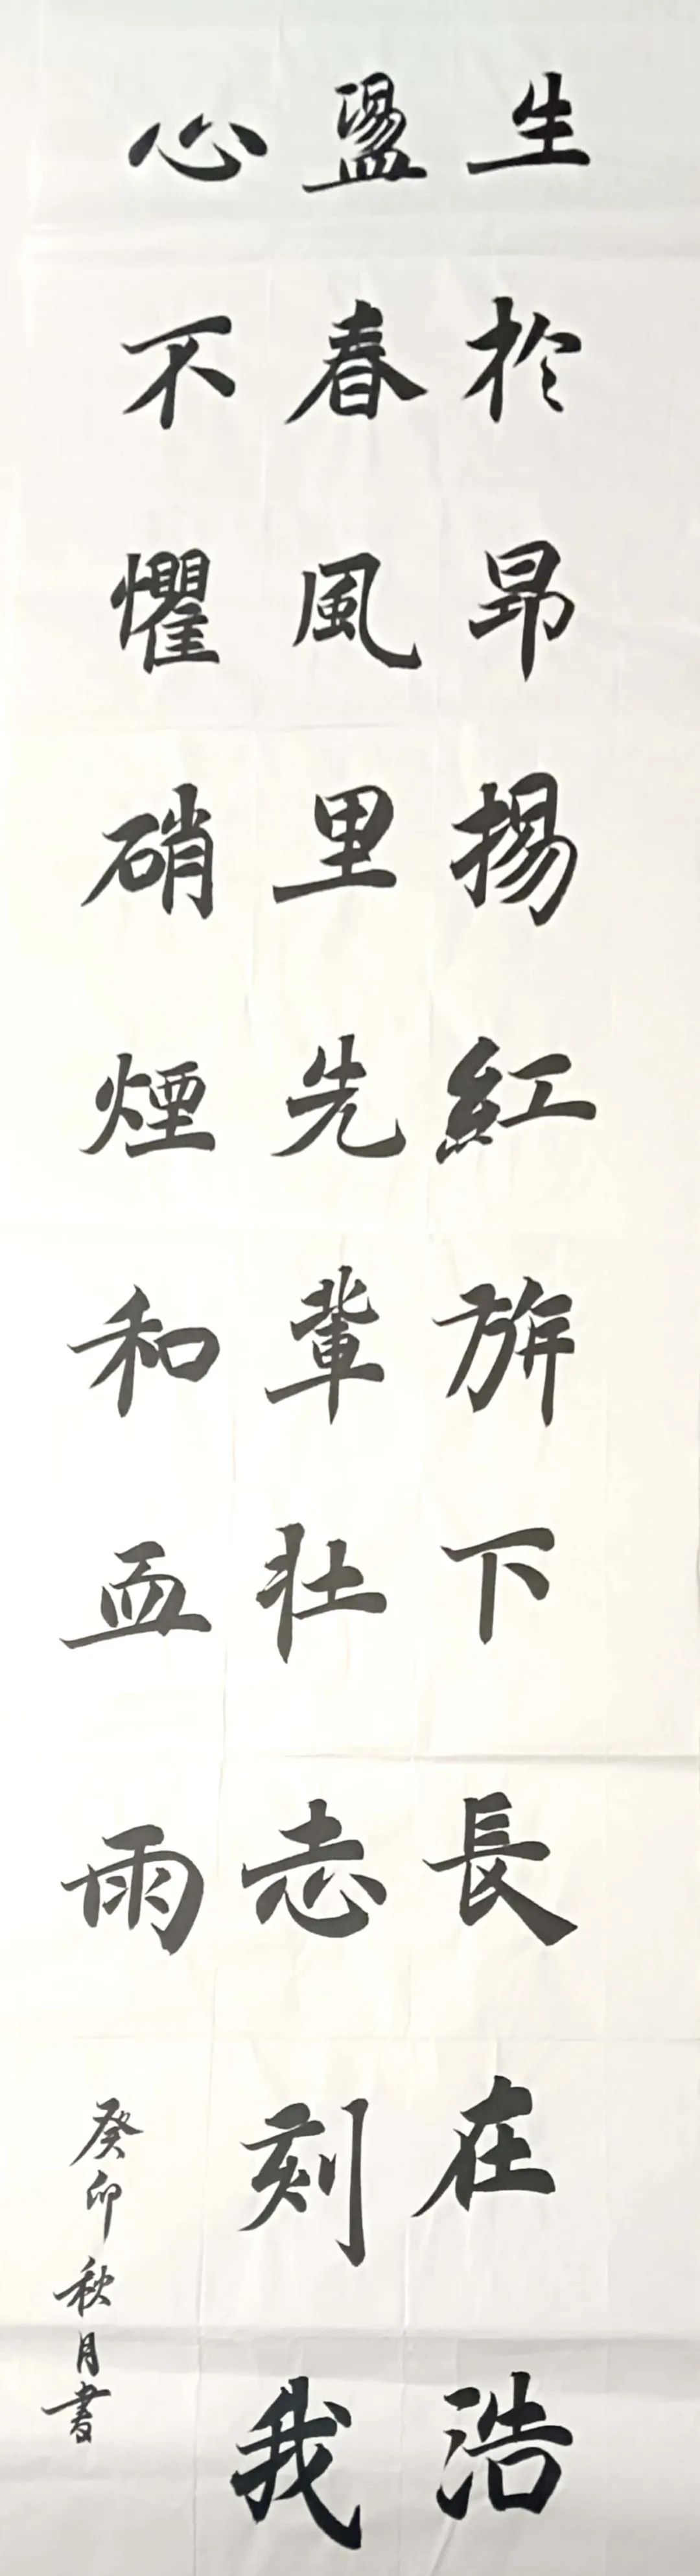 生於昂揚紅旂下長在浩
盪春風里先輩壯志刻我
心不懼硝煙和血雨
癸卯秋月書